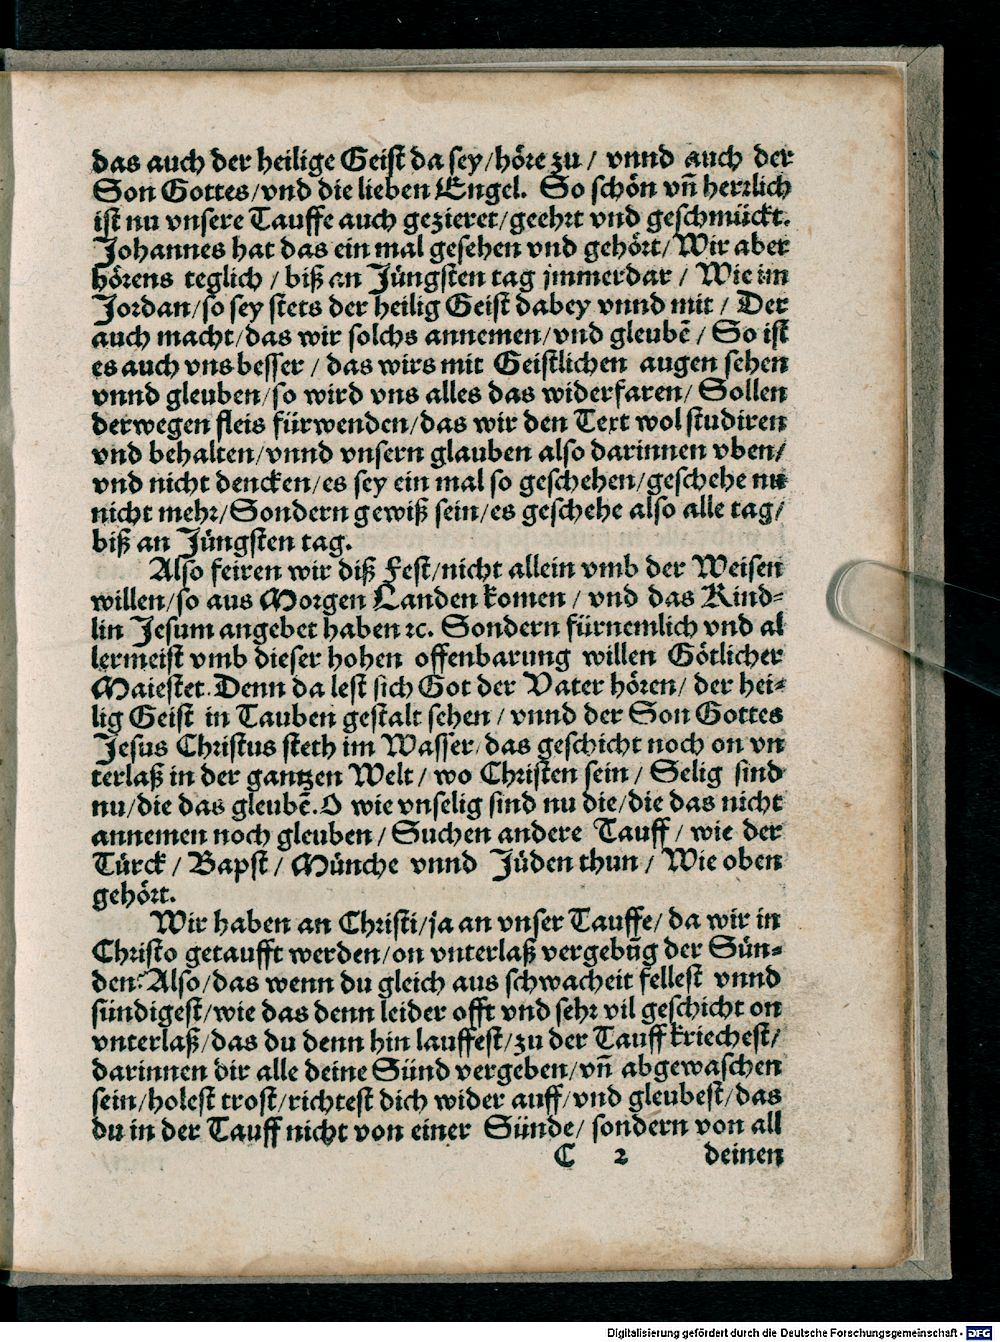 das auch der heilige Geist da sey/höre zu/ vnnd auch der
Son Gottes/vnd die lieben Engel. So schön vn̄ herrlich
ist nu vnsere Tauffe auch gezieret/geehrt vnd geschmückt.
Johannes hat das ein mal gesehen vnd gehört/Wir aber
hörens teglich / biß an Jüngsten tag jmmerdar / Wie im
Jordan/so sey stets der heilig Geist dabey vnnd mit / Der
auch macht/das wir solchs annemen/vnd gleubē / So ist
es auch vns besser / das wirs mit Geistlichen augen sehen
vnnd gleuben/so wird vns alles das widerfaren/ Sollen
derwegen fleis fürwenden/das wir den Text wol studiren
vnd behalten/vnnd vnsern glauben also darinnen vben/
vnd nicht dencken/es sey ein mal so geschehen/geschehe nu
nicht mehr/Sondern gewiß sein/es geschehe also alle tag/
biß an Jüngsten tag.
Also feiren wir diß Fest/nicht allein vmb der Weisen
willen/so aus Morgen Landen komen / vnd das Kind=
lin Jesum angebet haben ꝛc. Sondern fürnemlich vnd al
lermeist vmb dieser hohen offenbarung willen Götlicher
Maiestet. Denn da lest sich Got der Vater hören/ der hei=
lig Geist in Tauben gestalt sehen / vnnd der Son Gottes
Jesus Christus steth im Wasser/das geschicht noch on vn
terlaß in der gantzen Welt / wo Christen sein / Selig sind
nu/die das gleubē. O wie vnselig sind nu die/die das nicht
annemen noch gleuben / Suchen andere Tauff / wie der
Türck / Bapst / Münche vnnd Jüden thun / Wie oben
gehört.
Wir haben an Christi/ja an vnser Tauffe/ da wir in
Christo getaufft werden/on vnterlaß vergebūg der Sün=
den: Also/das wenn du gleich aus schwacheit fellest vnnd
sündigest/wie das denn leider offt vnd sehr vil geschicht on
vnterlaß/das du denn hin lauffest/zu der Tauff kriechest/
darinnen dir alle deine Sünd vergeben/vn̄ abgewaschen
sein/holest trost/richtest dich wider auff/vnd gleubest/das
du in der Tauff nicht von einer Sünde/ sondern von all
C 2 deinen
Digitalisierung gefördert durch die Deutsche Forschungsgemeinschaft - DFG